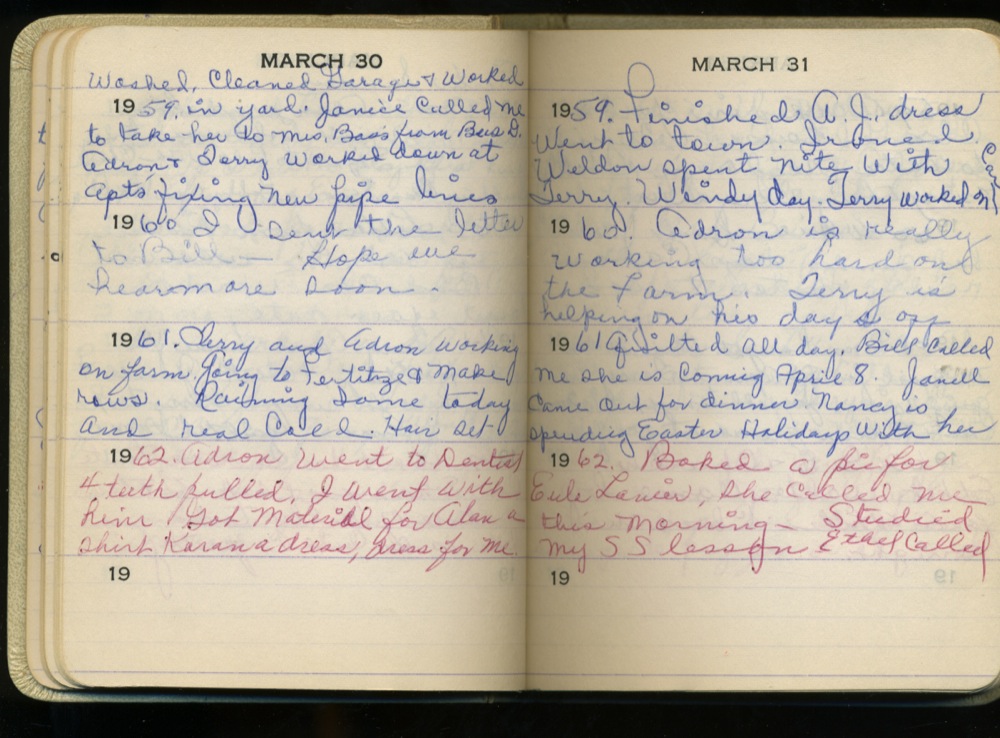 MARCH 30
Washed, Cleaned Garage & Worked
1959. in yard. Janice Called me
to take her to Mrs. Bass from Beus D.
Adron & Jerry worked down at
Apts fixing new pipe lines
1960 I sent the letter
to Bill — Hope we
hear more soon.
1961. Jerry and Adron working
on farm. Going to Fertilize & Make
rows. Raining Some today
and real Cold. Hair set
1962. Adron went to Dentist
4 teeth pulled. I went with
him Got Material for Alan a
shirt Karan a dress, dress for me.
19
MARCH 31
1959. Finished A.J. dress
Went to town. Ironed.
Weldon spent nite With
Jerry. Windy day. Jerry worked on Car
1960. Adron is really
working too hard on
the Farm. Jerry is
helping on his days off
1961 Quilted all day. Bill Called
me she is Coming April 8. Janell
Came out for dinner Nancy is
spending Easter Holidays With her
1962. Baked a pie for
Eula Lanier, she Called me
this Morning — Studied
My S S lesson Ethel Called
19